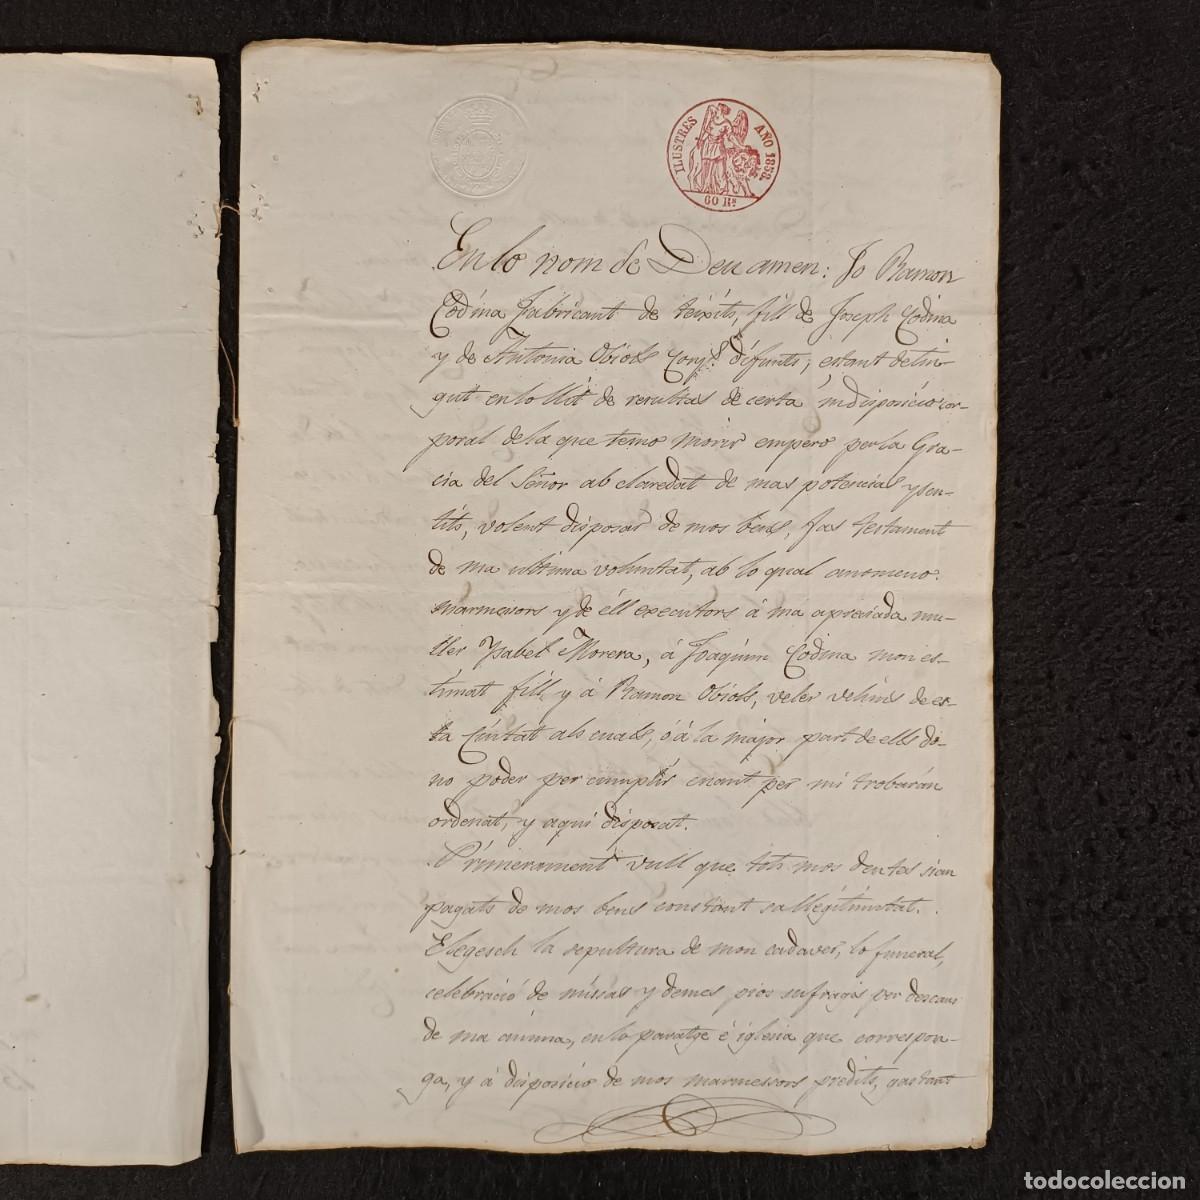 ILUSTRES AÑO 1858.
60 Rs
En lo nom de Deu amen: Jo Ramon
Codina Fabricant de teixits, fill de Joseph Codina
y de Antonia Obiols Conjs. difunts; estant detin-
gut en lo llit de resultas de certa indisposició cor-
poral de la que temo morir empero per la Gra-
cia del Señor ab claredat de mas potencias y sen-
tits, volent disposar de mos bens, fas testament
de ma ultima voluntat, ab lo qual anomeno
marmesors y de éll executors á ma apreciada mu-
ller Ysabél Morera, á Joaquim Codina mon es-
timat fill y á Ramon Obiols, veler vehins de es-
ta Ciutat als cuals, ó á la major part de ells do-
no poder per cumplir cuant per mi trobarán
ordenat, y aqui disposat.
Primerament vull que tots mos deutes sian
pagats de mos bens constant sa llegitimitat.
Elegesch la sepultura de mon cadaver, lo funeral,
celebració de missas y demes pios sufragis per descans
de ma anima, en lo paratge é iglesia que correspon-
ga, y á disposició de mos marmessors predits, gastant
todocoleccion